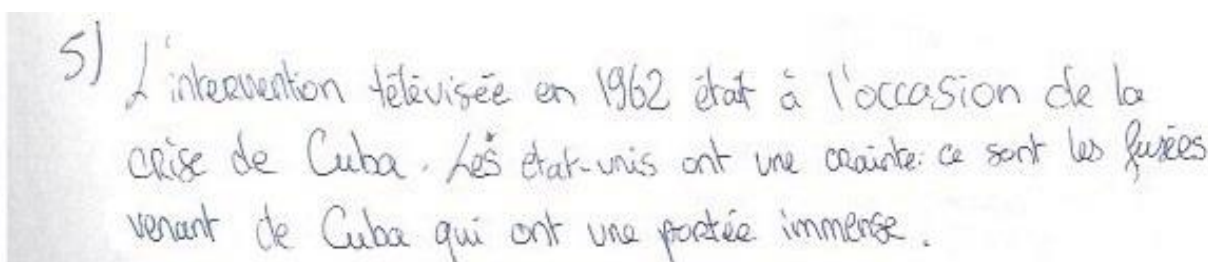 5) L'intervention télévisée en 1962 était à l'occasion de la
crise de Cuba. Les état-unis ont une crainte: ce sont les fusées
venant de Cuba qui ont une portée immense.